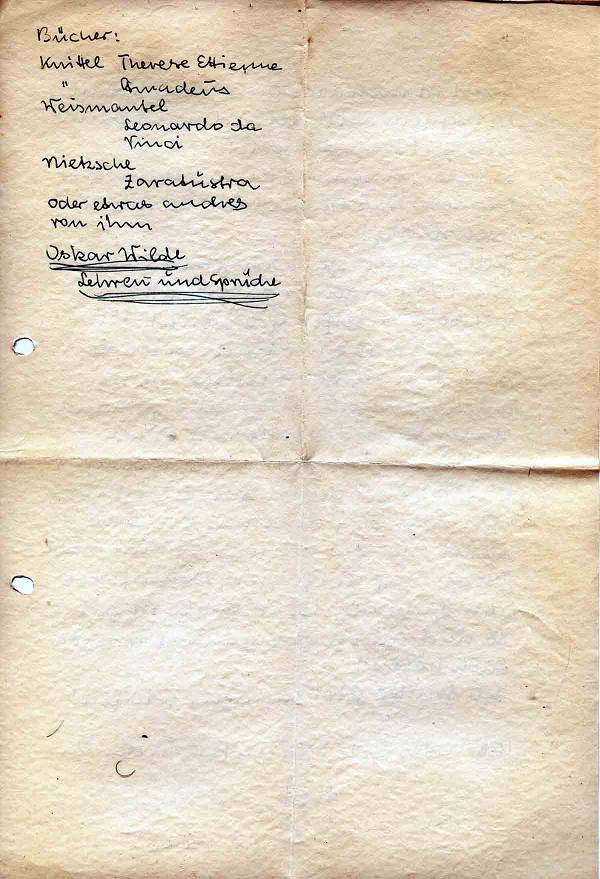 Bücher:
Knittel Therese Ettienne
" Amadeus
Weismantel
Leonardo da
Vinci
Nietzsche
Zaratustra
oder etwas andres
von ihm
Oskar Wilde
Lehren und Sprüche